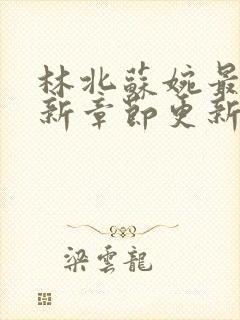 林北蘇婉最
新章節更新
梁雲龍